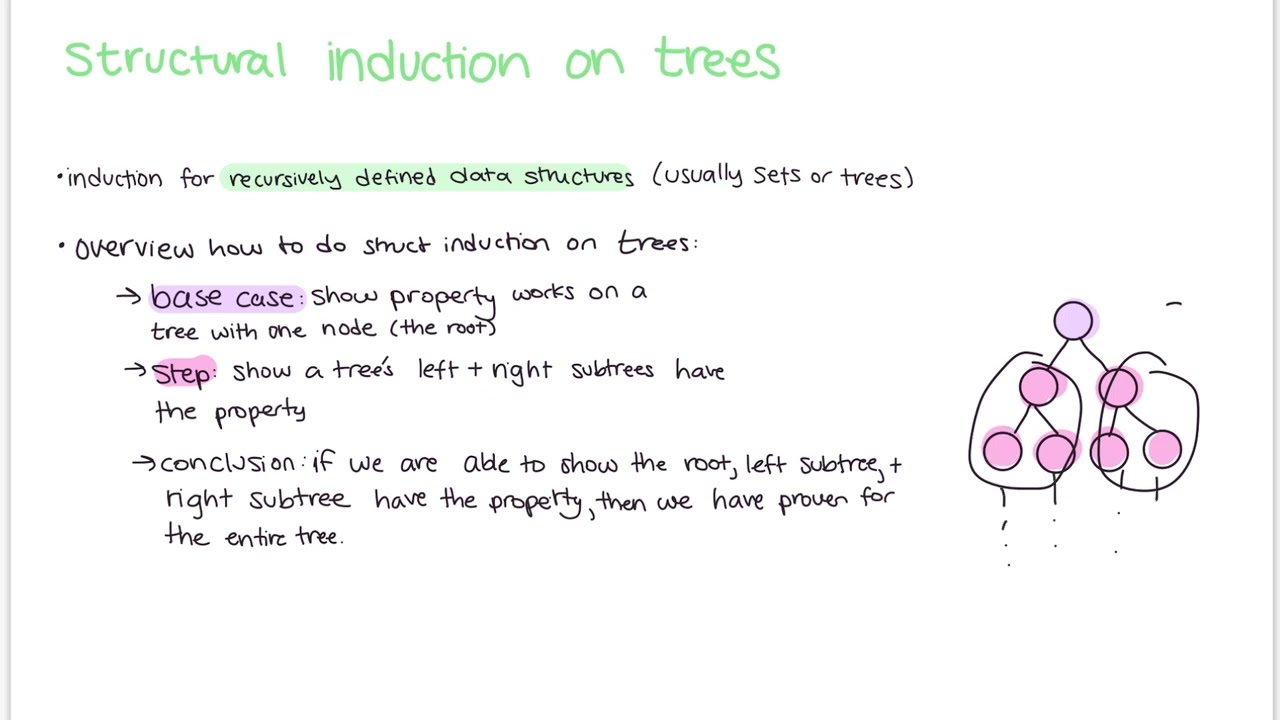 Structural induction on trees
•induction for recursively defined data structures (usually sets or trees)
• overview how to do struct induction on trees:
→ base case: show property works on a
tree with one node (the root)
→ Step: show a tree's left + right subtrees have
the property
→ conclusion: if we are able to show the root, left subtree, +
right subtree have the property, then we have proven for
the entire tree.